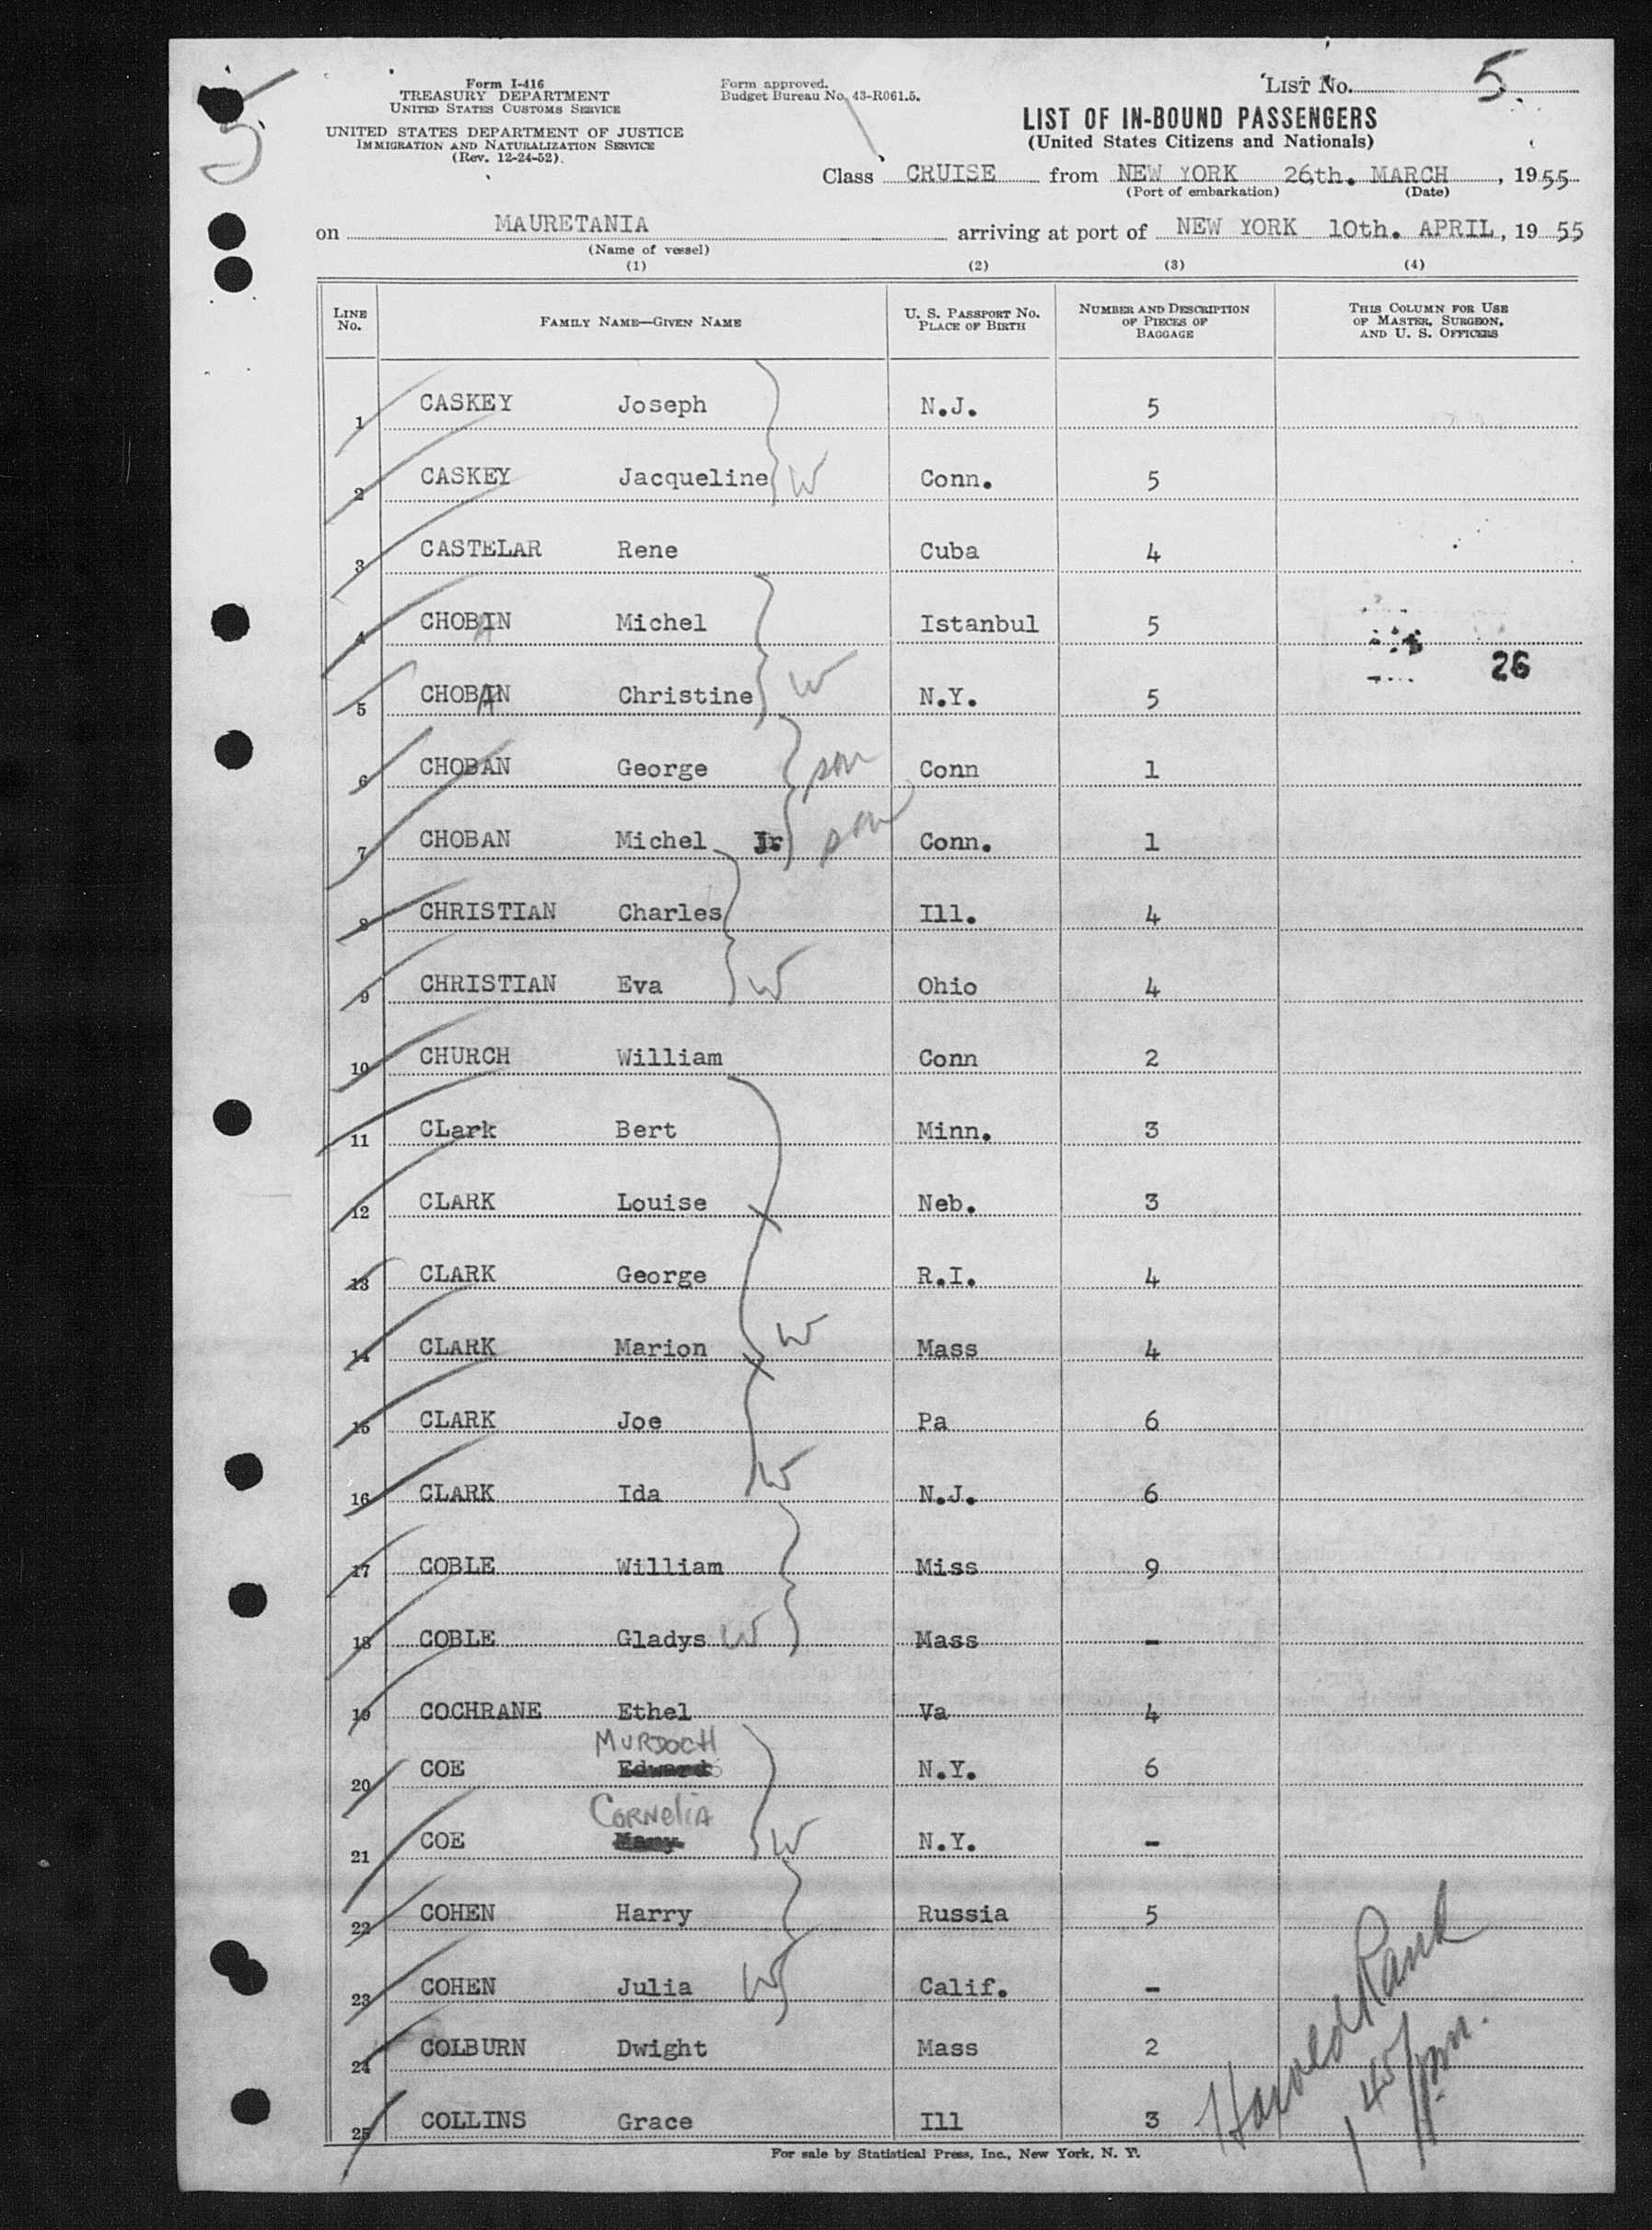 5
Form I-416
TREASURY DEPARTMENT
UNITED STATES CUSTOMS SERVICE
UNITED STATES DEPARTMENT OF JUSTICE
IMMIGRATION AND NATURALIZATION SERVICE
(Rev. 12-24-52)
Form approved.
Budget Bureau No. 43-R061.5.
LIST No. 5
LIST OF IN-BOUND PASSENGERS
(United States Citizens and Nationals)
Class CRUISE from NEW YORK 26th. MARCH, 1955
(Port of embarkation) (Date)
on MAURETANIA arriving at port of NEW YORK 10th. APRIL, 19 55
(Name of vessel)
(1) (2) (3) (4)
LINE No. FAMILY NAME—GIVEN NAME U. S. PASSPORT No. PLACE OF BIRTH NUMBER AND DESCRIPTION OF PIECES OF BAGGAGE THIS COLUMN FOR USE OF MASTER, SURGEON, AND U. S. OFFICERS
1 CASKEY Joseph N.J. 5
2 CASKEY Jacqueline W Conn. 5
3 CASTELAR Rene Cuba 4
4 CHOBAN Michel Istanbul 5
26
5 CHOBAN Christine W N.Y. 5
6 CHOBAN George son Conn 1
7 CHOBAN Michel Jr son Conn. 1
8 CHRISTIAN Charles Ill. 4
9 CHRISTIAN Eva W Ohio 4
10 CHURCH William Conn 2
11 CLark Bert Minn. 3
12 CLARK Louise Neb. 3
13 CLARK George R.I. 4
14 CLARK Marion W Mass 4
15 CLARK Joe Pa 6
16 CLARK Ida W N.J. 6
17 COBLE William Miss 9
18 COBLE Gladys W Mass -
19 COCHRANE Ethel Va 4
MURDOCH
20 COE Edward N.Y. 6
CORNELIA
21 COE Mary W N.Y. -
22 COHEN Harry Russia 5
23 COHEN Julia W Calif. -
24 COLBURN Dwight Mass 2
25 COLLINS Grace Ill 3
Harold Rank
1 45 pm.
For sale by Statistical Press, Inc., New York, N. Y.